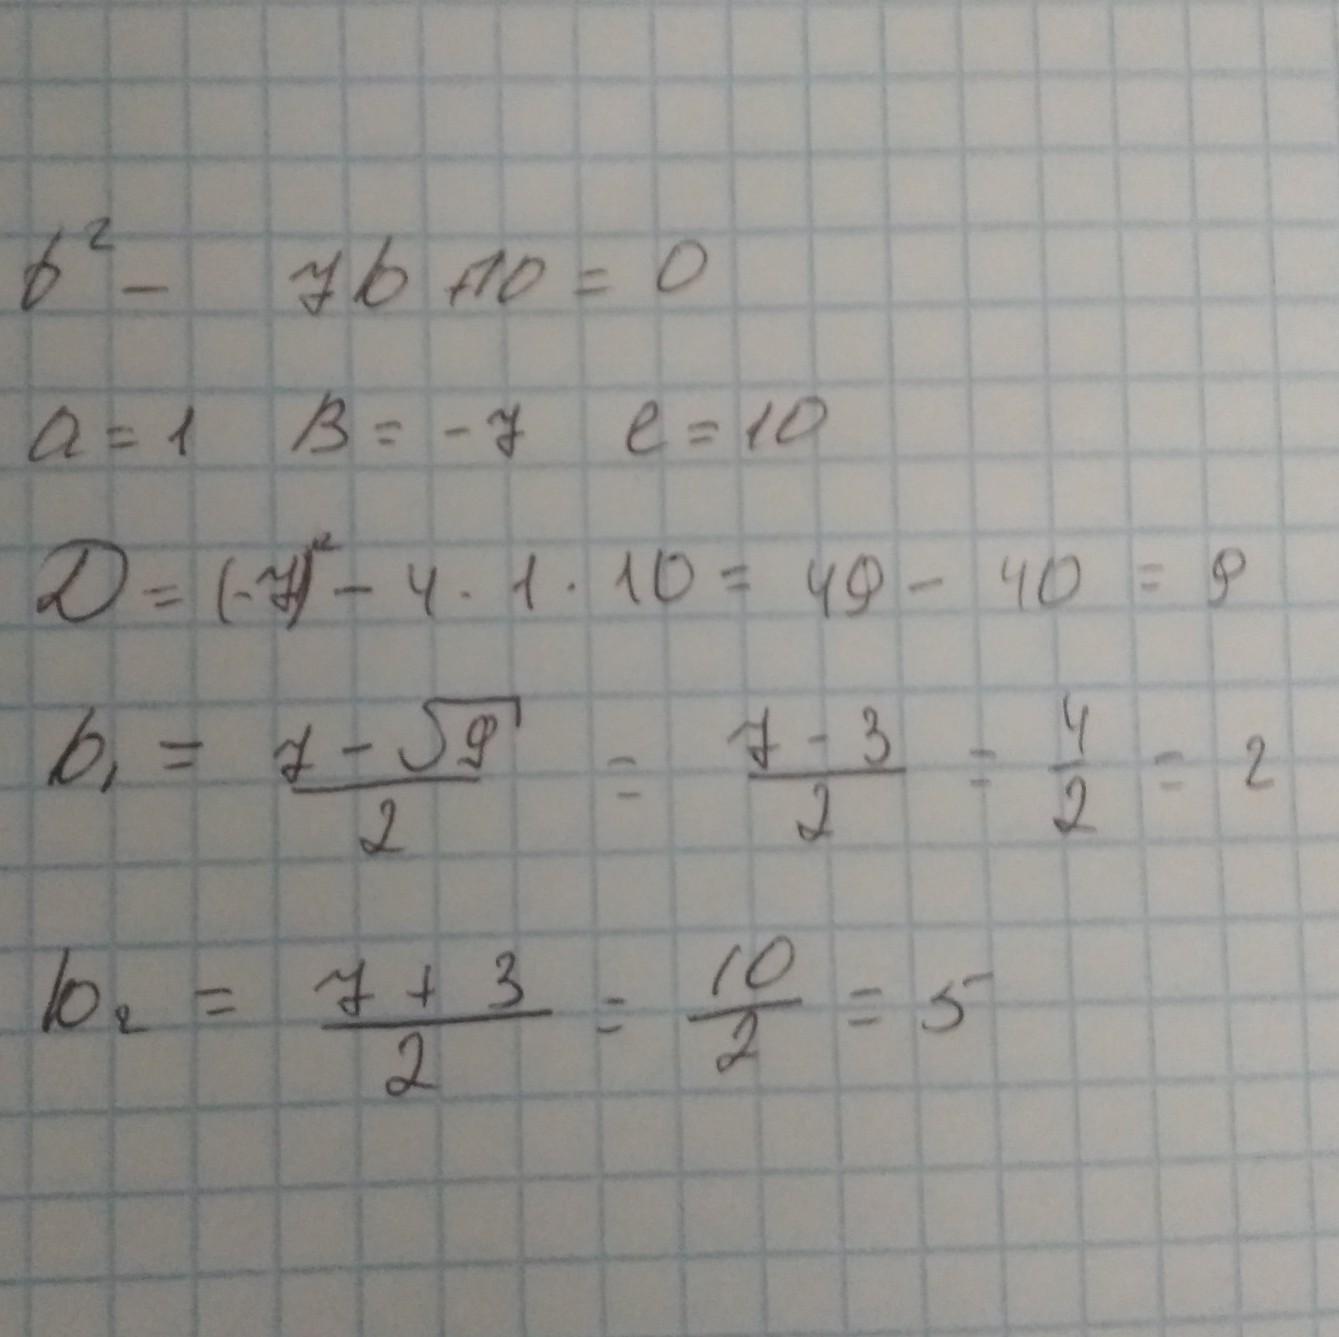 b² - 7b + 10 = 0
a = 1 B = -7 c = 10
D = (-7)² - 4 · 1 · 10 = 49 - 40 = 9
b₁ = (7 - √9)/2 = (7 - 3)/2 = 4/2 = 2
b₂ = (7 + 3)/2 = 10/2 = 5